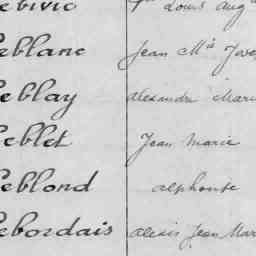 ebivic Louis Aug
eblanc Jean Mie Jose
eblay alexandre Mari
eblet Jean Marie
eblond alphonse
ebordais alexis Jean Mar